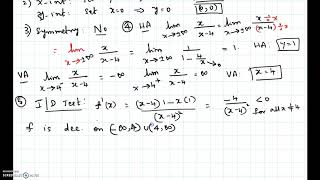 2) x-int: Set y=0
y-int: Set x=0 ⇒ y=0 (0,0)
3) Symmetry No ④ HA lim x→±∞ x/(x-4) = lim x→±∞ (x · 1/x)/((x-4) · 1/x)
= lim x→±∞ x/(x-4) = lim x→±∞ 1/(1 - 4/x) = 1. HA: y=1
VA lim x→4⁻ x/(x-4) = -∞ lim x→4⁺ x/(x-4) = ∞ VA: x=4
⑤ I/D Test: f'(x) = ((x-4)1 - x(1))/(x-4)² = -4/(x-4)² < 0 for all x≠4
f is dec. on (-∞,4) ∪ (4,∞)